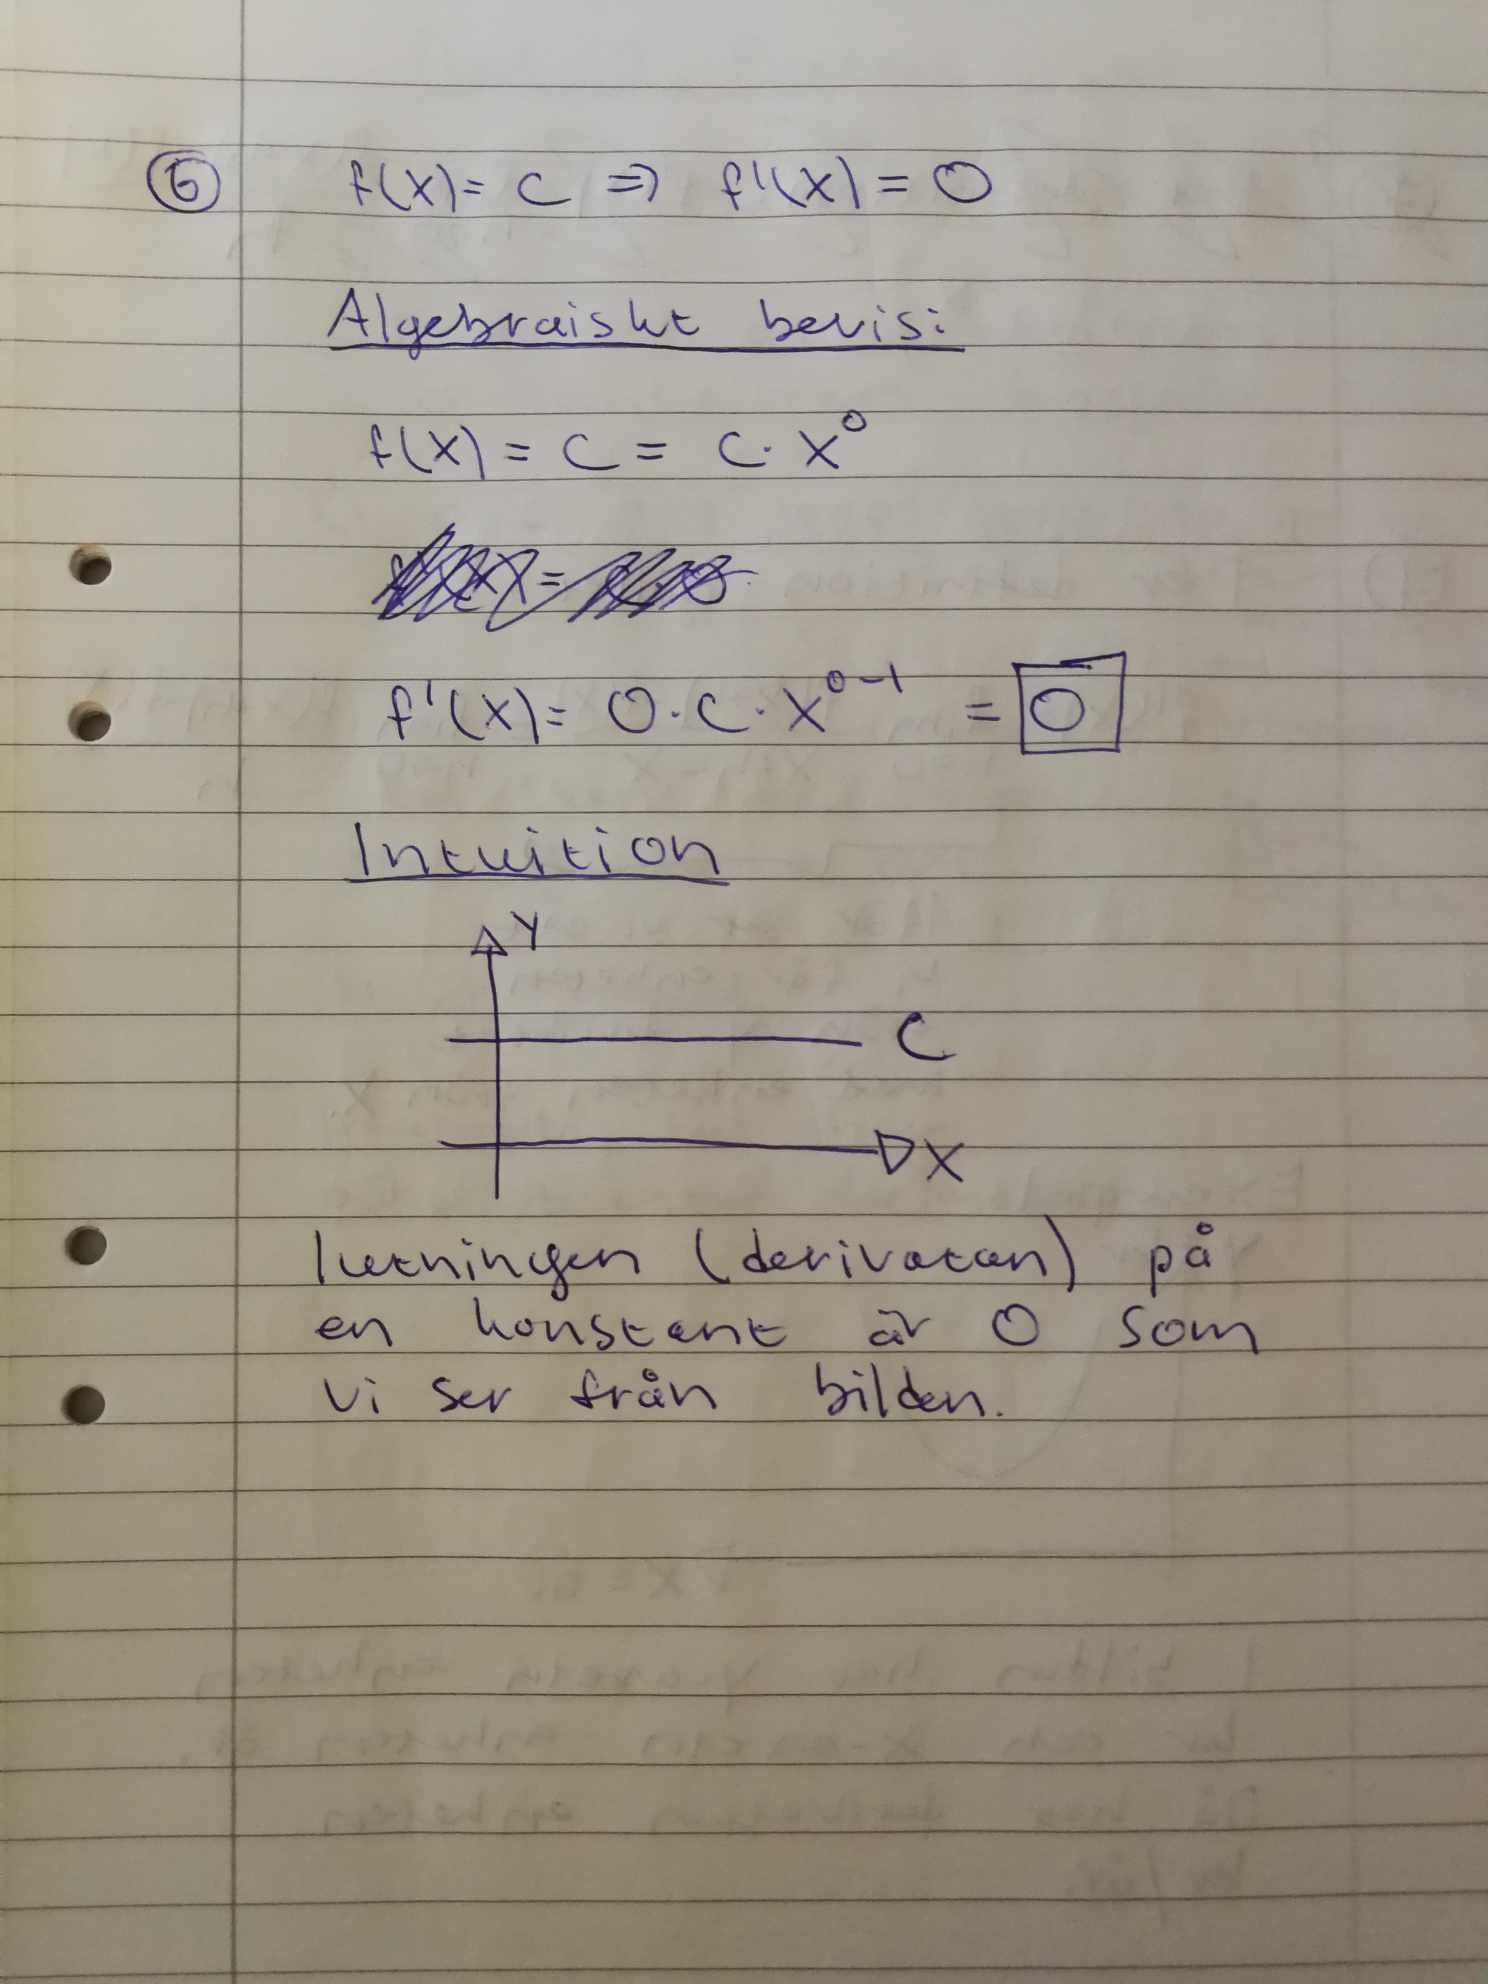 6 f(x) = C => f'(x) = 0
Algebraiskt bevis:
f(x) = C = C · x⁰
f'(x) = 0 · C · x⁰⁻¹ = 0
Intuition
Y
C
X
lutningen (derivatan) på
en konstant är 0 som
vi ser från bilden.